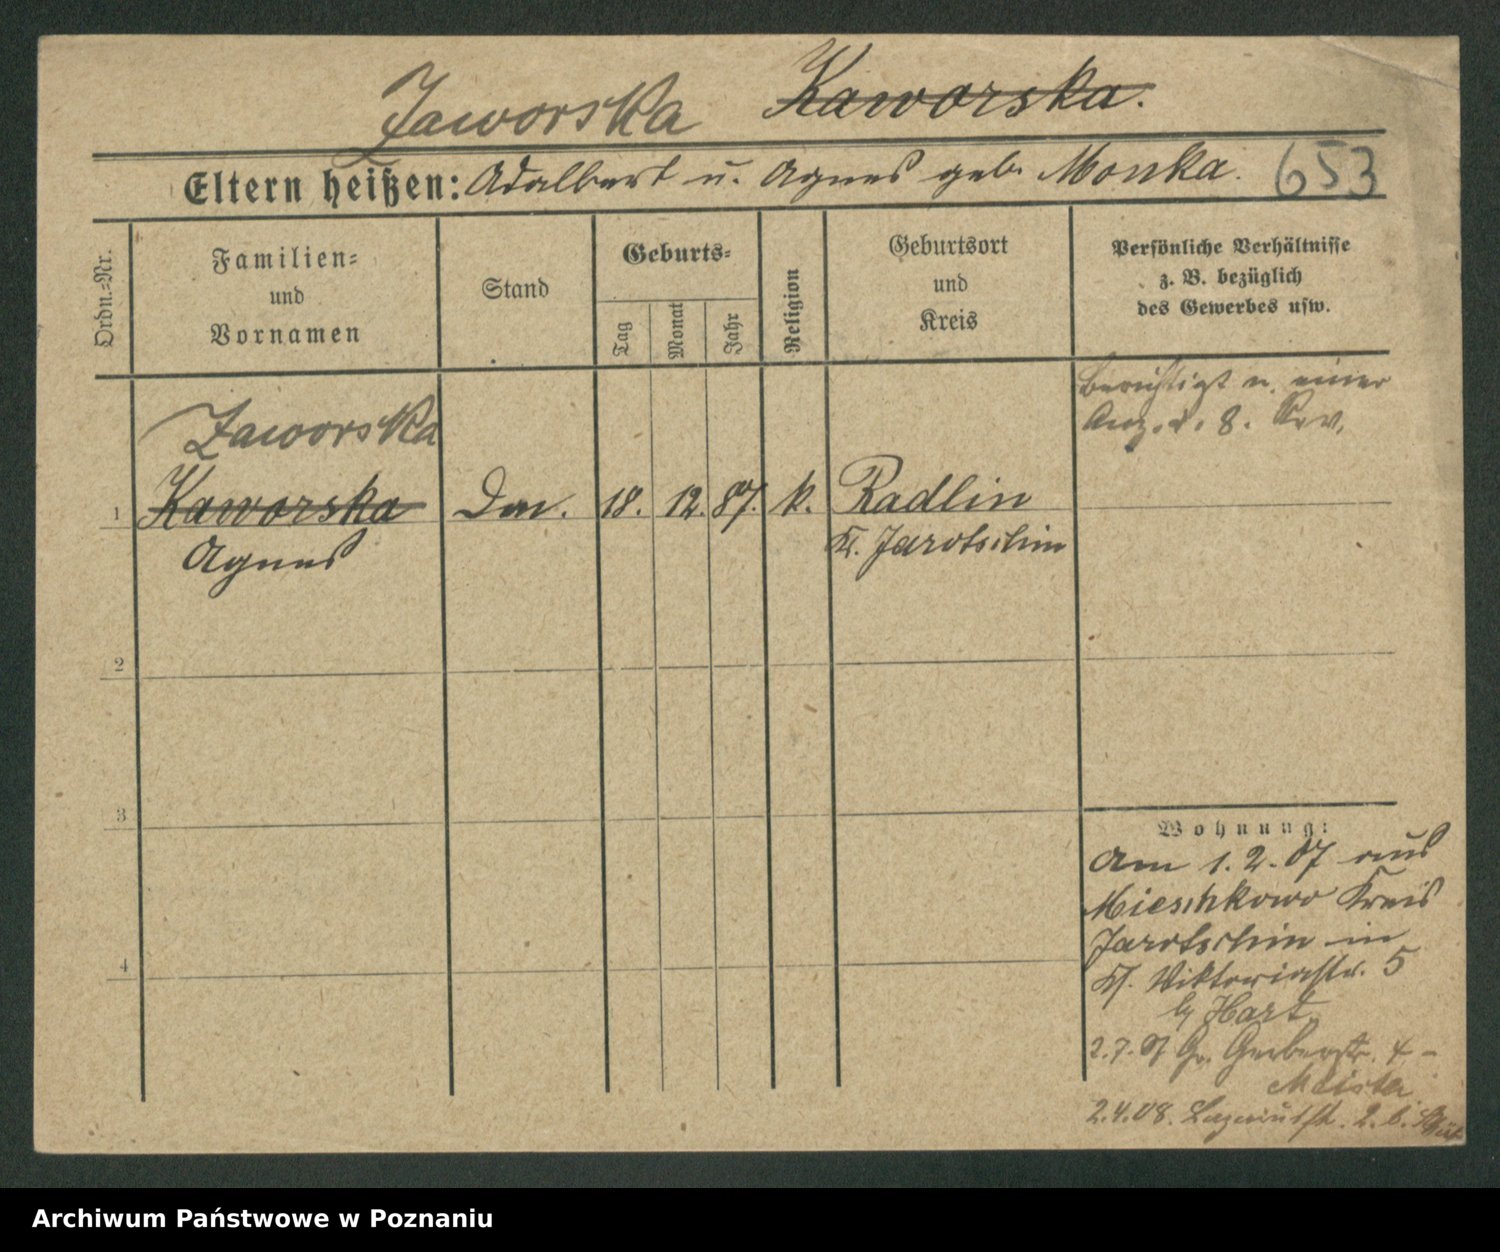 Jaworska Kaworska.
Eltern heißen: Adalbert u. Agnes geb. Monka.
653
Ordn.-Nr.
Familien-
und
Vornamen
Stand
Geburts-
Tag
Monat
Jahr
Religion
Geburtsort
und
Kreis
Persönliche Verhältnisse
z. B. bezüglich
des Gewerbes usw.
Berichtigt n. einer
Anz. d. 8. Rev.
Jaworska
1 Kaworska 18. 12. 87. k. Radlin
Agnes Kr. Jarotschin
2
3
4
Wohnung:
Am 1.2.07 aus
Mieschkowo Kreis
Jarotschin in
Viktoriastr. 5
b/ Hart
2.7. Gr. Gerberstr. 4 -
Meister
2.4.08. 2. b.
Archiwum Państwowe w Poznaniu